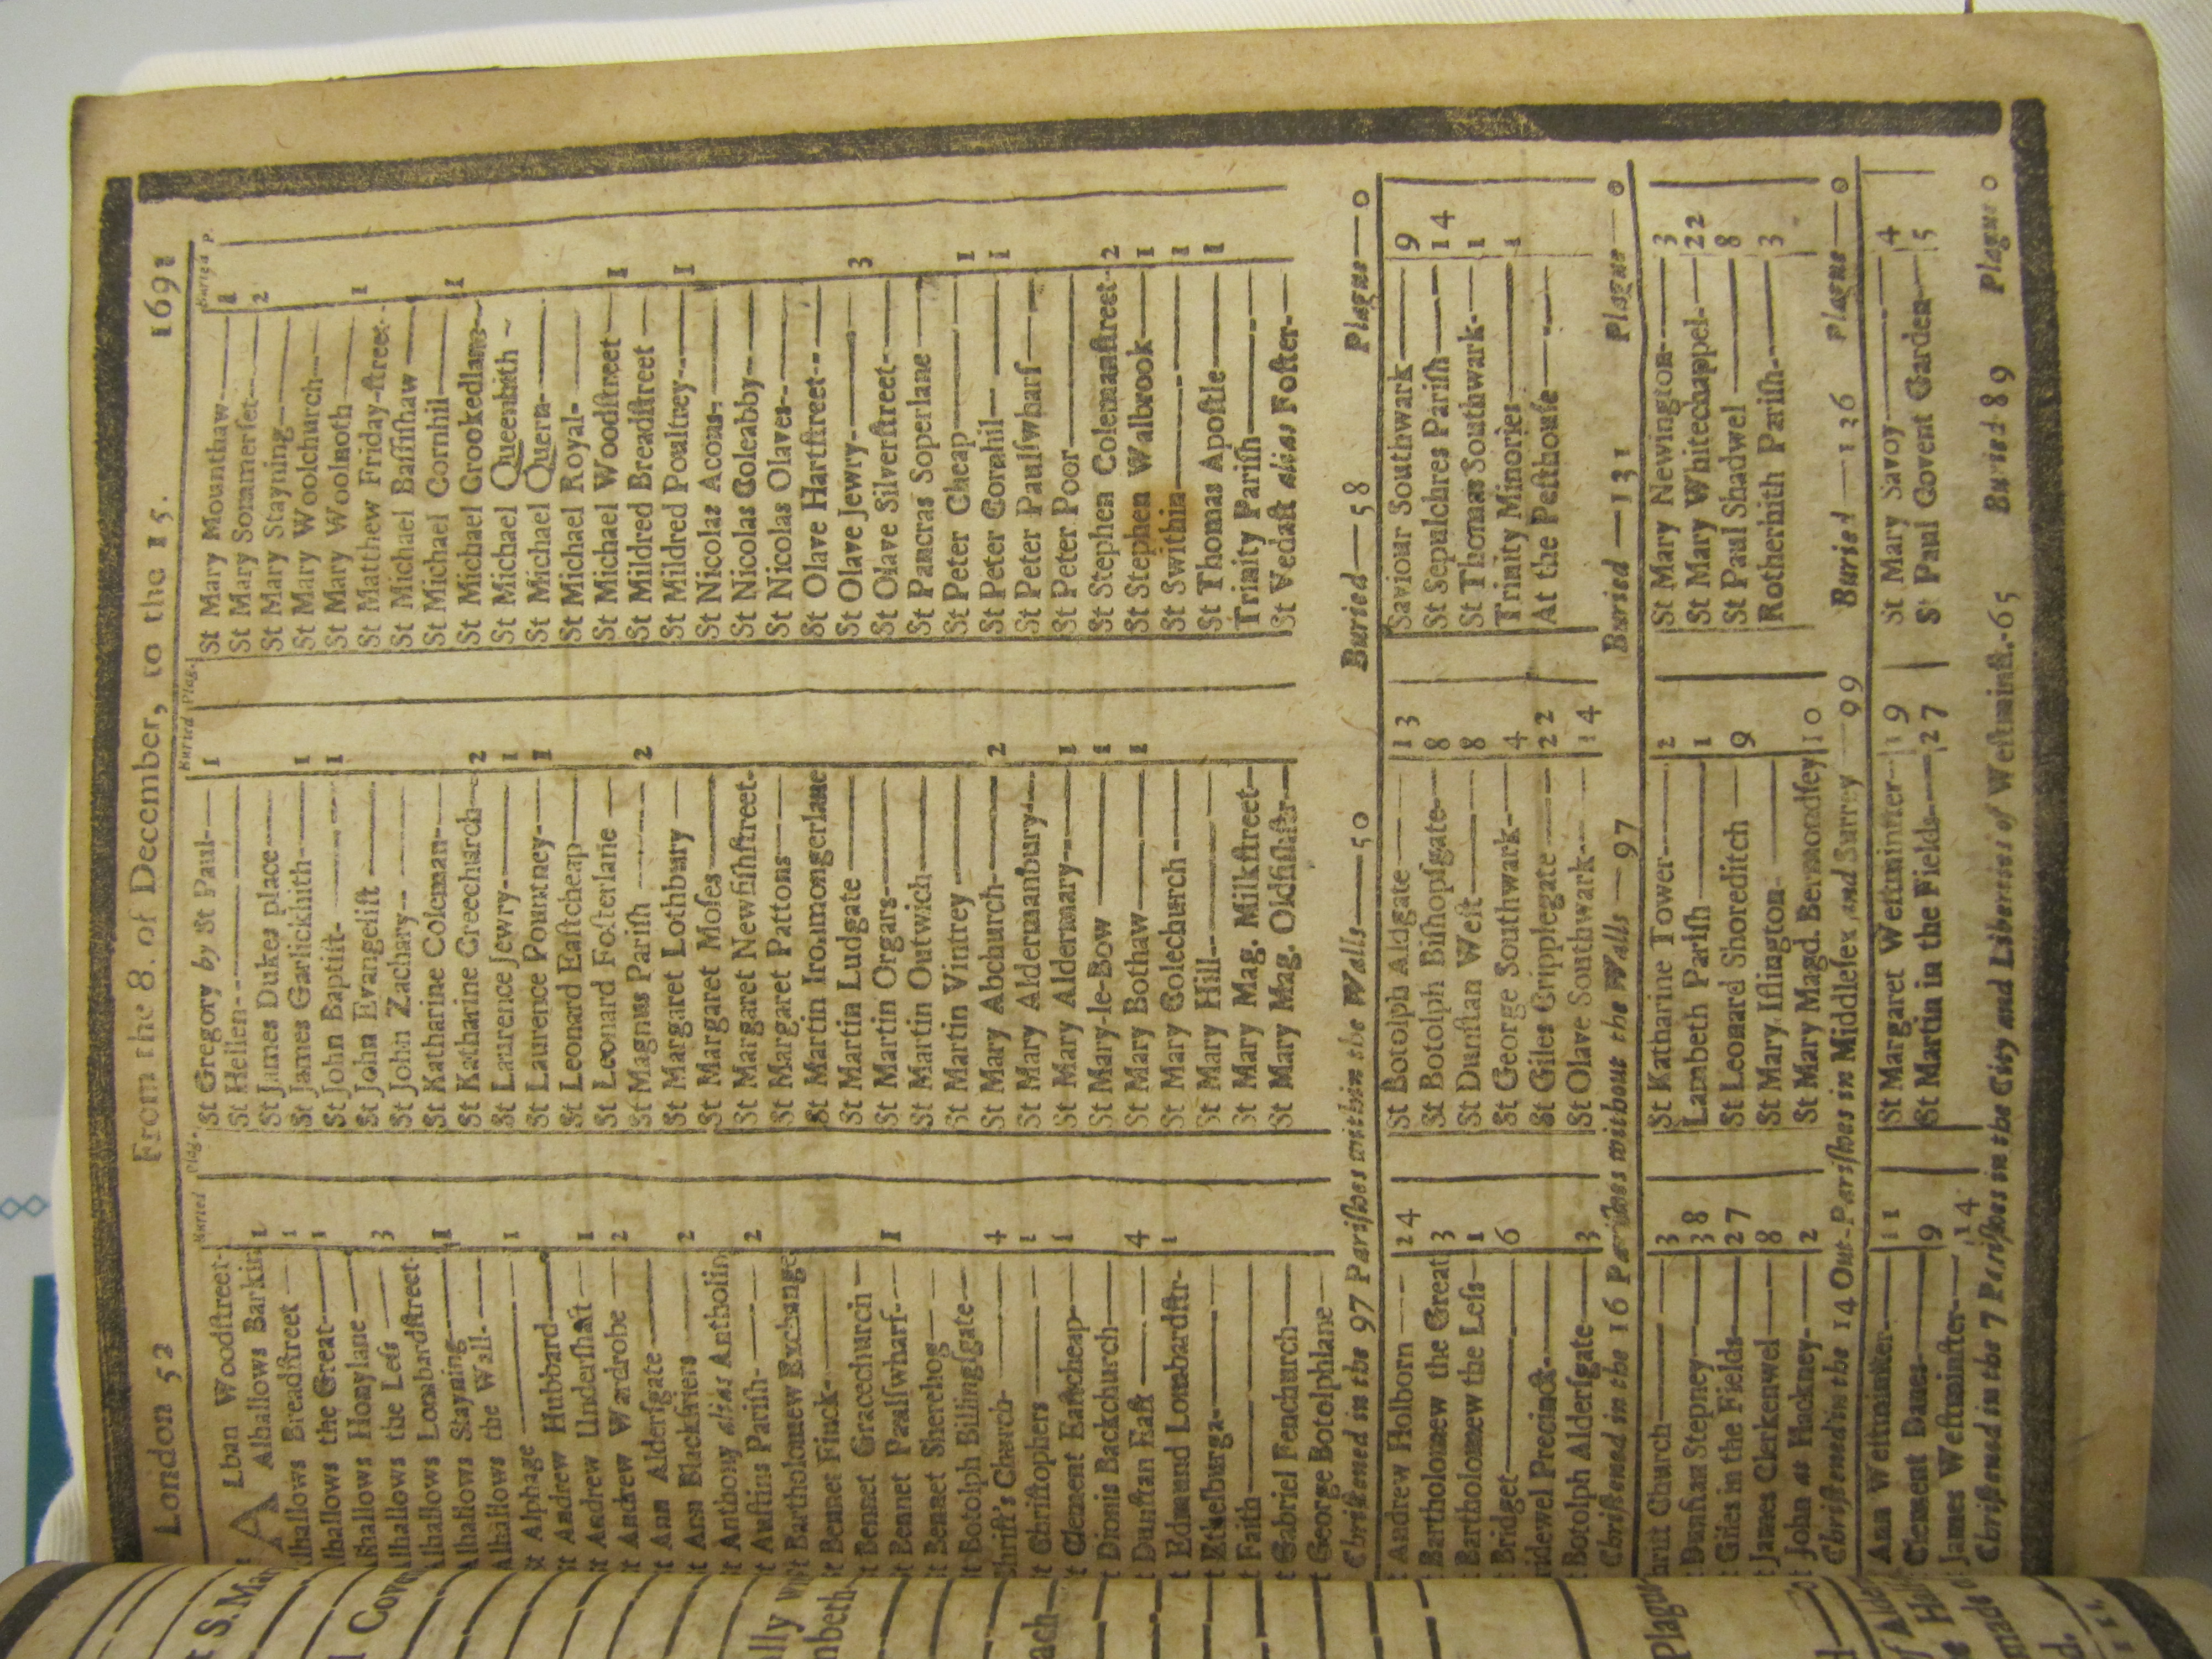 London 52 From the 8. of December, to the 15. 1691
Buried Plag.
Alban Woodſtreet-
Alhallows Barkin 1
lhallows Breadſtreet — 1
lhallows the Great— 1
lhallows Honylane —
lhallows the Leſs — 3
lhallows Lombardſtreet-
lhallows Stayning— 1
lhallows the Wall-
t Alphage — 1
t Andrew Hubbard—
t Andrew Underſhaft— 1
t Andrew Wardrobe — 2
t Ann Alderſgate —
t Ann Blackfriers — 2
t Anthony alias Antholin
t Auſtins Pariſh- — 2
t Bartholomew Exchange
t Bennet Finck—
t Bennet Gracechurch —
t Bennet Paulſwharf- — 1
t Bennet Sherehog —
t Botolph Billingſgate—
hriſt's Church- — 4
t Chriſtophers — 1
t Clement Eaſtcheap— 1
t Dionis Backchurch—
t Dunſtan Eaſt — 4
t Edmund Lombardſtr- 1
t Ethelburga-
t Faith—
t Gabriel Fenchurch—
t George Botolphlane—
Buried Plag.
St Gregory by St Paul-— 1
St Hellen-
St James Dukes place—
St James Garlickhith— 1
St John Baptiſt- — 1
St John Evangeliſt —
St John Zachary--
St Katharine Coleman-—
St Katharine Creechurch— 2
St Laurence Jewry-— 1
St Laurence Pountney-— 1
St Leonard Eaſtcheap—
St Leonard Foſterlane —
St Magnus Pariſh — 2
St Margaret Lothbury —
St Margaret Moſes—
St Margaret Newfiſhſtreet-
St Margaret Pattons—
St Martin Ironmongerlane
St Martin Ludgate —
St Martin Orgars-—
St Martin Outwich—
St Martin Vintrey —
St Mary Abchurch-— 2
St Mary Aldermanbury—
St Mary Aldermary-— 1
St Mary-le-Bow — 1
St Mary Bothaw— 1
St Mary Colechurch —
St Mary Hill-—
St Mary Mag. Milkſtreet—
St Mary Mag. Oldfiſhſtr—
Buried P.
St Mary Mounthaw— 1
St Mary Sommerſet-— 2
St Mary Stayning-—
St Mary Woolchurch—
St Mary Woolnoth—
St Matthew Friday-ſtreet- 1
St Michael Baſſiſhaw —
St Michael Cornhil— 1
St Michael Crookedlane—
St Michael Queenhith -
St Michael Quern-—
St Michael Royal-—
St Michael Woodſtreet— 1
St Mildred Breadſtreet —
St Mildred Poultney-— 1
St Nicolas Acons-
St Nicolas Coleabby—
St Nicolas Olaves-—
St Olave Hartſtreet-—
St Olave Jewry-— 3
St Olave Silverſtreet-—
St Pancras Soperlane —
St Peter Cheap— 1
St Peter Cornhil— 1
St Peter Paulſwharf—
St Peter Poor—
St Stephen Colemanſtreet- 2
St Stephen Walbrook— 1
St Swithin— 1
St Thomas Apoſtle— 1
Trinity Pariſh—
St Vedaſt alias Foſter-—
Chriſtened in the 97 Pariſhes within the Walls—50 Buried—58 Plague—0
t Andrew Holborn — 24
t Bartholomew the Great 3
t Bartholomew the Leſs— 1
t Bridget— 6
ridewel Precinct-—
t Botolph Alderſgate— 3
St Botolph Aldgate— 13
St Botolph Biſhopſgate— 8
St Dunſtan Weſt— 8
St George Southwark-— 4
St Giles Cripplegate — 22
St Olave Southwark-— 14
Saviour Southwark— 9
St Sepulchres Pariſh— 14
St Thomas Southwark- 1
Trinity Minories— 1
At the Peſthouſe —
Chriſtened in the 16 Pariſhes without the Walls—97 Buried —131 Plague—0
hriſt Church — 3
t Dunſtan Stepney— 38
t Giles in the Fields— 27
t James Clerkenwel — 8
t John at Hackney-— 2
St Katharine Tower-— 2
Lambeth Pariſh— 1
St Leonard Shoreditch — 9
St Mary Iſlington—
St Mary Magd. Bermondſey 10
St Mary Newington-— 3
St Mary Whitechappel-— 22
St Paul Shadwel — 8
Rotherhith Pariſh-— 3
Chriſtened in the 14 Out-Pariſhes in Middleſex, and Surry — 99 Buried—126 Plague—0
Ann Weſtminſter— 11
Clement Danes— 9
James Weſtminſter-— 14
St Margaret Weſtminſter- 19
St Martin in the Fields— 27
St Mary Savoy— 4
St Paul Covent Garden— 5
Chriſtened in the 7 Pariſhes in the City and Liberties of Weſtminſt.-65 Buried-89 Plague 0